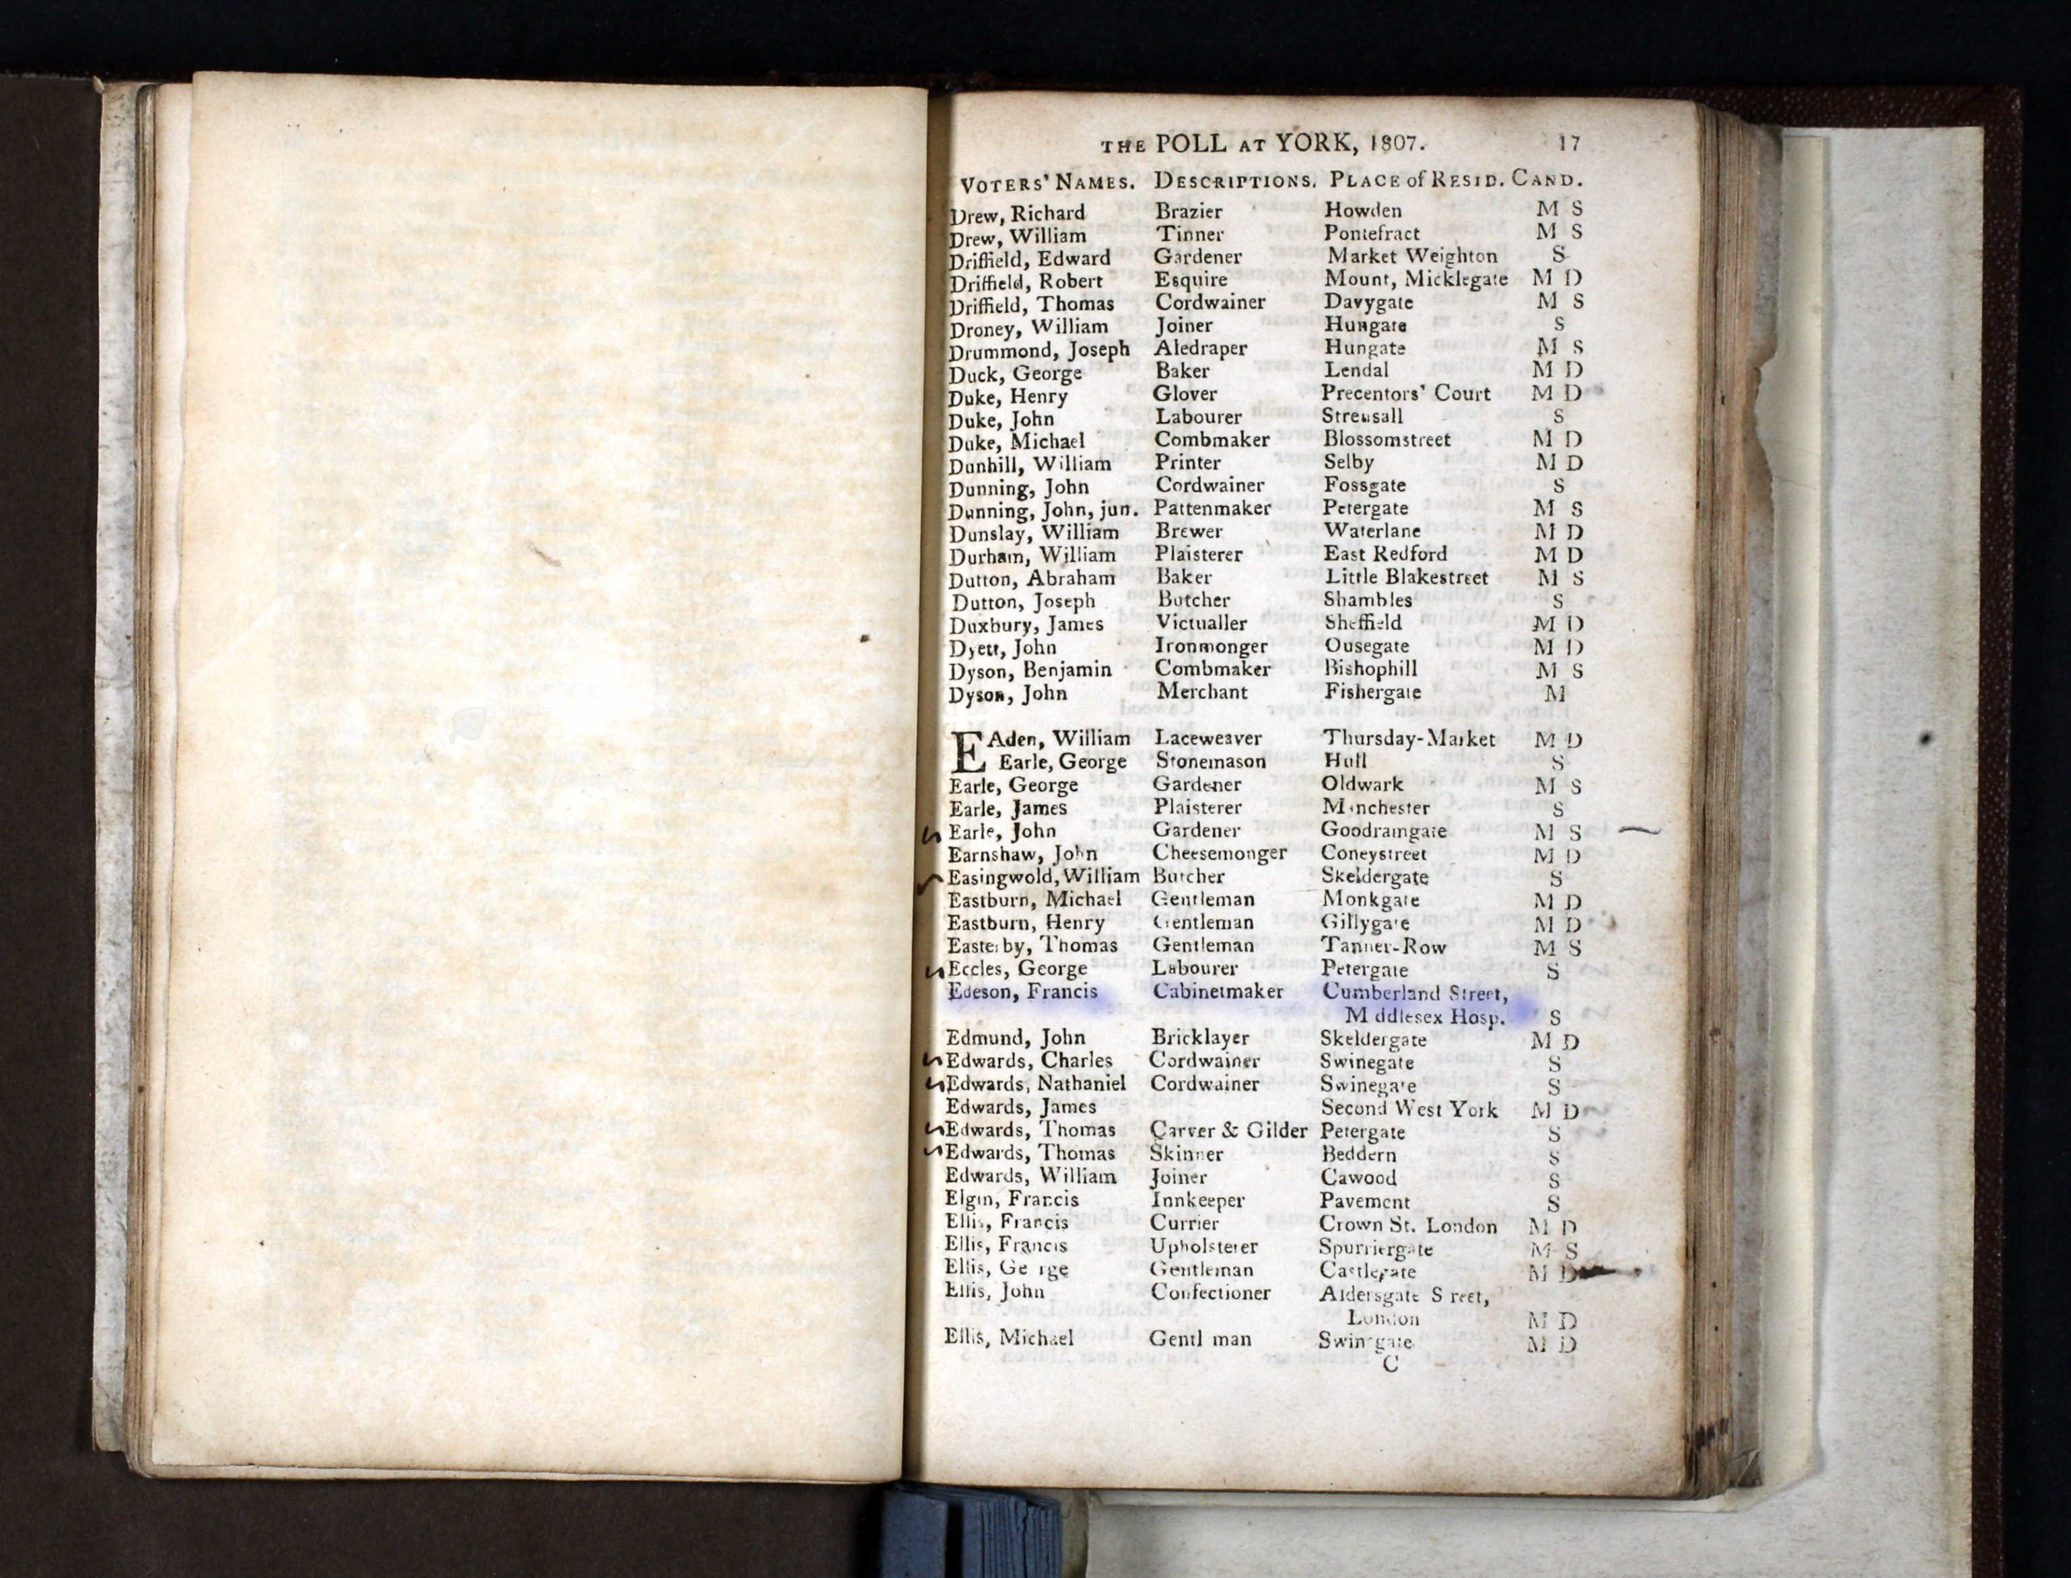 THE POLL AT YORK, 1807. 17
VOTERS' NAMES. DESCRIPTIONS. PLACE of RESID. CAND.
Drew, Richard Brazier Howden M S
Drew, William Tinner Pontefract M S
Driffield, Edward Gardener Market Weighton S
Driffield, Robert Esquire Mount, Micklegate M D
Driffield, Thomas Cordwainer Davygate M S
Droney, William Joiner Hungate S
Drummond, Joseph Aledraper Hungate M S
Duck, George Baker Lendal M D
Duke, Henry Glover Precentors' Court M D
Duke, John Labourer Strensall S
Duke, Michael Combmaker Blossomstreet M D
Dunhill, William Printer Selby M D
Dunning, John Cordwainer Fossgate S
Dunning, John, jun. Pattenmaker Petergate M S
Dunslay, William Brewer Waterlane M D
Durham, William Plaisterer East Redford M D
Dutton, Abraham Baker Little Blakestreet M S
Dutton, Joseph Butcher Shambles S
Duxbury, James Victualler Sheffield M D
Dyett, John Ironmonger Ousegate M D
Dyson, Benjamin Combmaker Bishophill M S
Dyson, John Merchant Fishergate M
EAden, William Laceweaver Thursday-Market M D
Earle, George Stonemason Hull S
Earle, George Gardener Oldwark M S
Earle, James Plaisterer Manchester S
Earle, John Gardener Goodramgate M S
Earnshaw, John Cheesemonger Coneystreet M D
Easingwold, William Butcher Skeldergate S
Eastburn, Michael Gentleman Monkgate M D
Eastburn, Henry Gentleman Gillygate M D
Easterby, Thomas Gentleman Tanner-Row M S
Eccles, George Labourer Petergate S
Edeson, Francis Cabinetmaker Cumberland Street,
Middlesex Hosp. S
Edmund, John Bricklayer Skeldergate M D
Edwards, Charles Cordwainer Swinegate S
Edwards, Nathaniel Cordwainer Swinegate S
Edwards, James Second West York M D
Edwards, Thomas Carver & Gilder Petergate S
Edwards, Thomas Skinner Beddern S
Edwards, William Joiner Cawood S
Elgin, Francis Innkeeper Pavement S
Ellis, Francis Currier Crown St. London M D
Ellis, Francis Upholsterer Spurriergate M S
Ellis, George Gentleman Castlegate M D
Ellis, John Confectioner Aldersgate Street,
London M D
Ellis, Michael Gentleman Swinegate M D
C